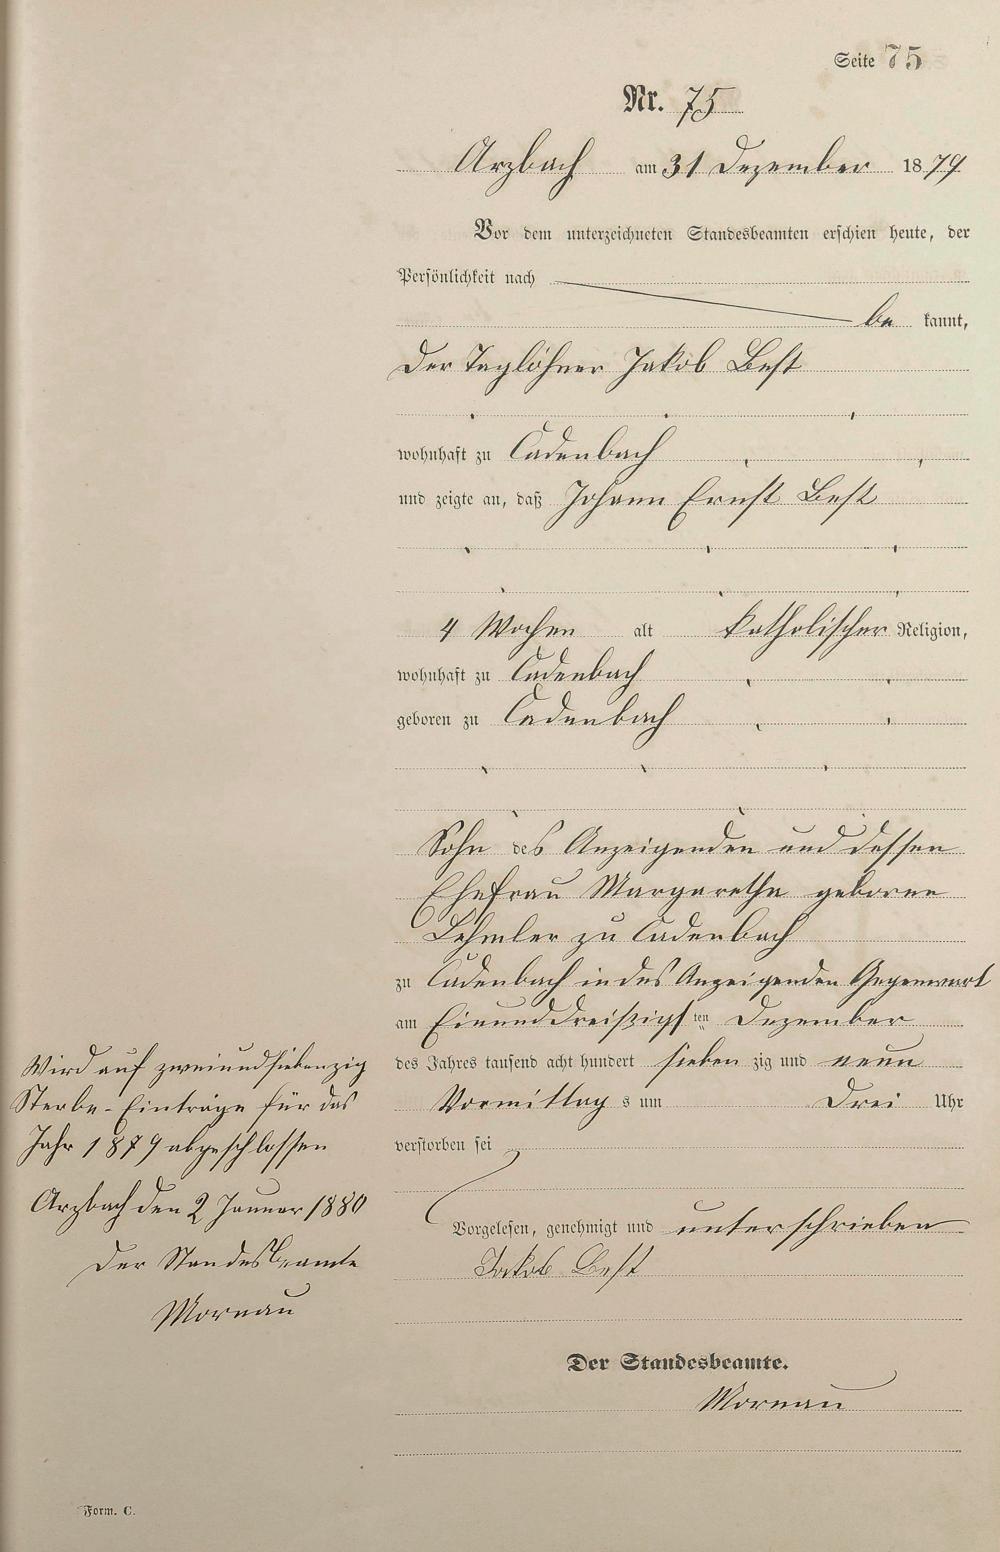 Seite 75
Nr. 75
Arzbach am 31 Dezember 1879
Vor dem unterzeichneten Standesbeamten erschien heute, der
Persönlichkeit nach
be kannt,
der Taglöhner Jakob Best
wohnhaft zu Cadenbach
und zeigte an, daß Johann Ernst Best
4 Wochen alt katholischer Religion,
wohnhaft zu Cadenbach
geboren zu Cadenbach
Sohn des Anzeigenden und dessen
Ehefrau Margaretha geborne
Lehmler zu Cadenbach
zu Cadenbach in des Anzeigenden Gegenwart
am Einunddreißigsten Dezember
des Jahres tausend acht hundert sieben zig und neun
Vormittags um Drei Uhr
verstorben sei
Vorgelesen, genehmigt und unterschrieben
Jakob Best
Der Standesbeamte.
Mornau
Wird auf zweiundsiebenzig
Sterbe-Einträge für das
Jahr 1879 abgeschlossen
Arzbach den 2 Januar 1880
Der Standesbeamte
Mornau
Form. C.